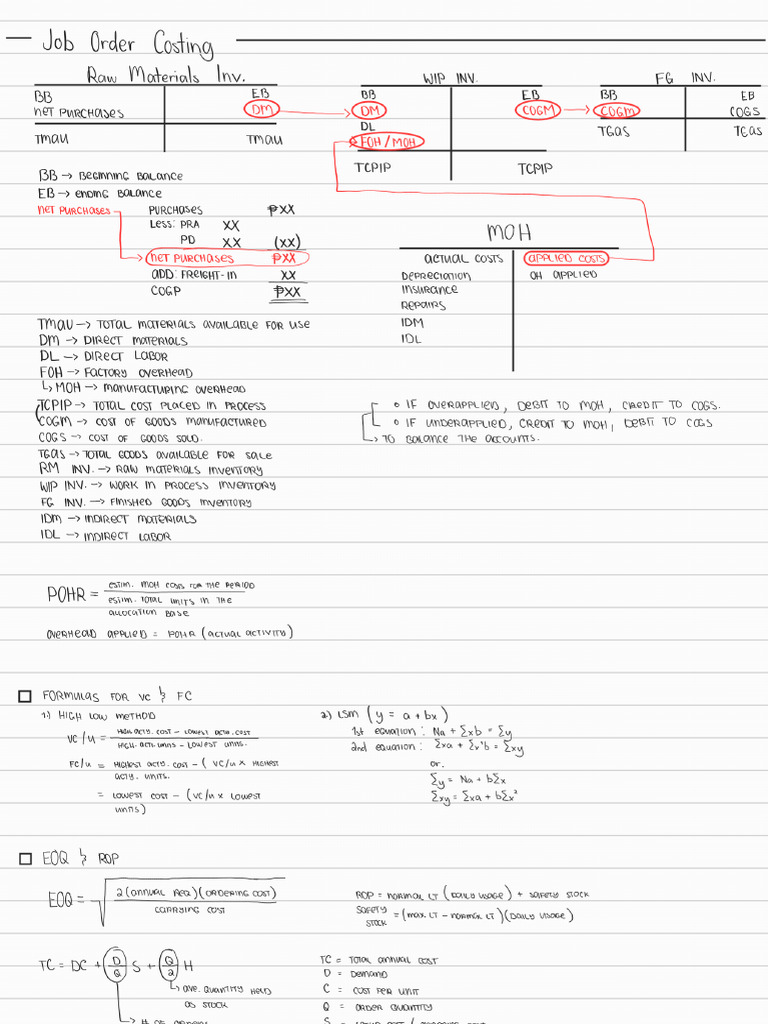 Job Order Costing
Raw Materials Inv.
BB EB
NET PURCHASES DM
TMAU TMAU
WIP INV.
BB EB
DM COGM
DL
FOH / MOH
TCPIP TCPIP
FG INV.
BB EB
COGM COGS
TGAS TGAS
BB → BEGINNING BALANCE
EB → ENDING BALANCE
NET PURCHASES
PURCHASES ₱XX
LESS: PRA XX
PD XX (XX)
NET PURCHASES ₱XX
ADD: FREIGHT-IN XX
COGP ₱XX
MOH
ACTUAL COSTS APPLIED COSTS
DEPRECIATION OH APPLIED
INSURANCE
REPAIRS
IDM
IDL
TMAU → TOTAL MATERIALS AVAILABLE FOR USE
DM → DIRECT MATERIALS
DL → DIRECT LABOR
FOH → FACTORY OVERHEAD
↳ MOH → MANUFACTURING OVERHEAD
TCPIP → TOTAL COST PLACED IN PROCESS
COGM → COST OF GOODS MANUFACTURED
COGS → COST OF GOODS SOLD.
TGAS → TOTAL GOODS AVAILABLE FOR SALE
RM INV. → RAW MATERIALS INVENTORY
WIP INV. → WORK IN PROCESS INVENTORY
FG INV. → FINISHED GOODS INVENTORY
IDM → INDIRECT MATERIALS
IDL → INDIRECT LABOR
∘ IF OVERAPPLIED, DEBIT TO MOH, CREDIT TO COGS.
∘ IF UNDERAPPLIED, CREDIT TO MOH, DEBIT TO COGS
↳ TO BALANCE THE ACCOUNTS.
POHR = ESTIM. MOH COSTS FOR THE PERIOD
ESTIM. TOTAL UNITS IN THE
ALLOCATION BASE
OVERHEAD APPLIED = POHR (ACTUAL ACTIVITY)
FORMULAS FOR VC & FC
1.) HIGH LOW METHOD
VC/U = HIGH. ACTU. COST - LOWEST ACTU. COST
HIGH. ACTI. UNITS - LOWEST UNITS.
FC/U = HIGHEST ACTU. COST - ( VC/U × HIGHEST
ACTU. UNITS.
= LOWEST COST - (VC/U × LOWEST
UNITS)
2) LSM (y = a + bx)
1st equation: Na + Σxb = Σy
2nd equation: Σxa + Σx²b = Σxy
or.
Σy = Na + bΣx
Σxy = Σxa + bΣx²
EOQ & ROP
EOQ = √ 2 (ANNUAL REQ) (ORDERING COST)
CARRYING COST
ROP = NORMAL LT (DAILY USAGE) + SAFETY STOCK
SAFETY STOCK = (MAX LT - NORMAL LT) (DAILY USAGE)
TC = DC + D/Q S + Q/2 H
↳ AVE. QUANTITY HELD
AS STOCK
TC = TOTAL ANNUAL COST
D = DEMAND
C = COST PER UNIT
Q = ORDER QUANTITY